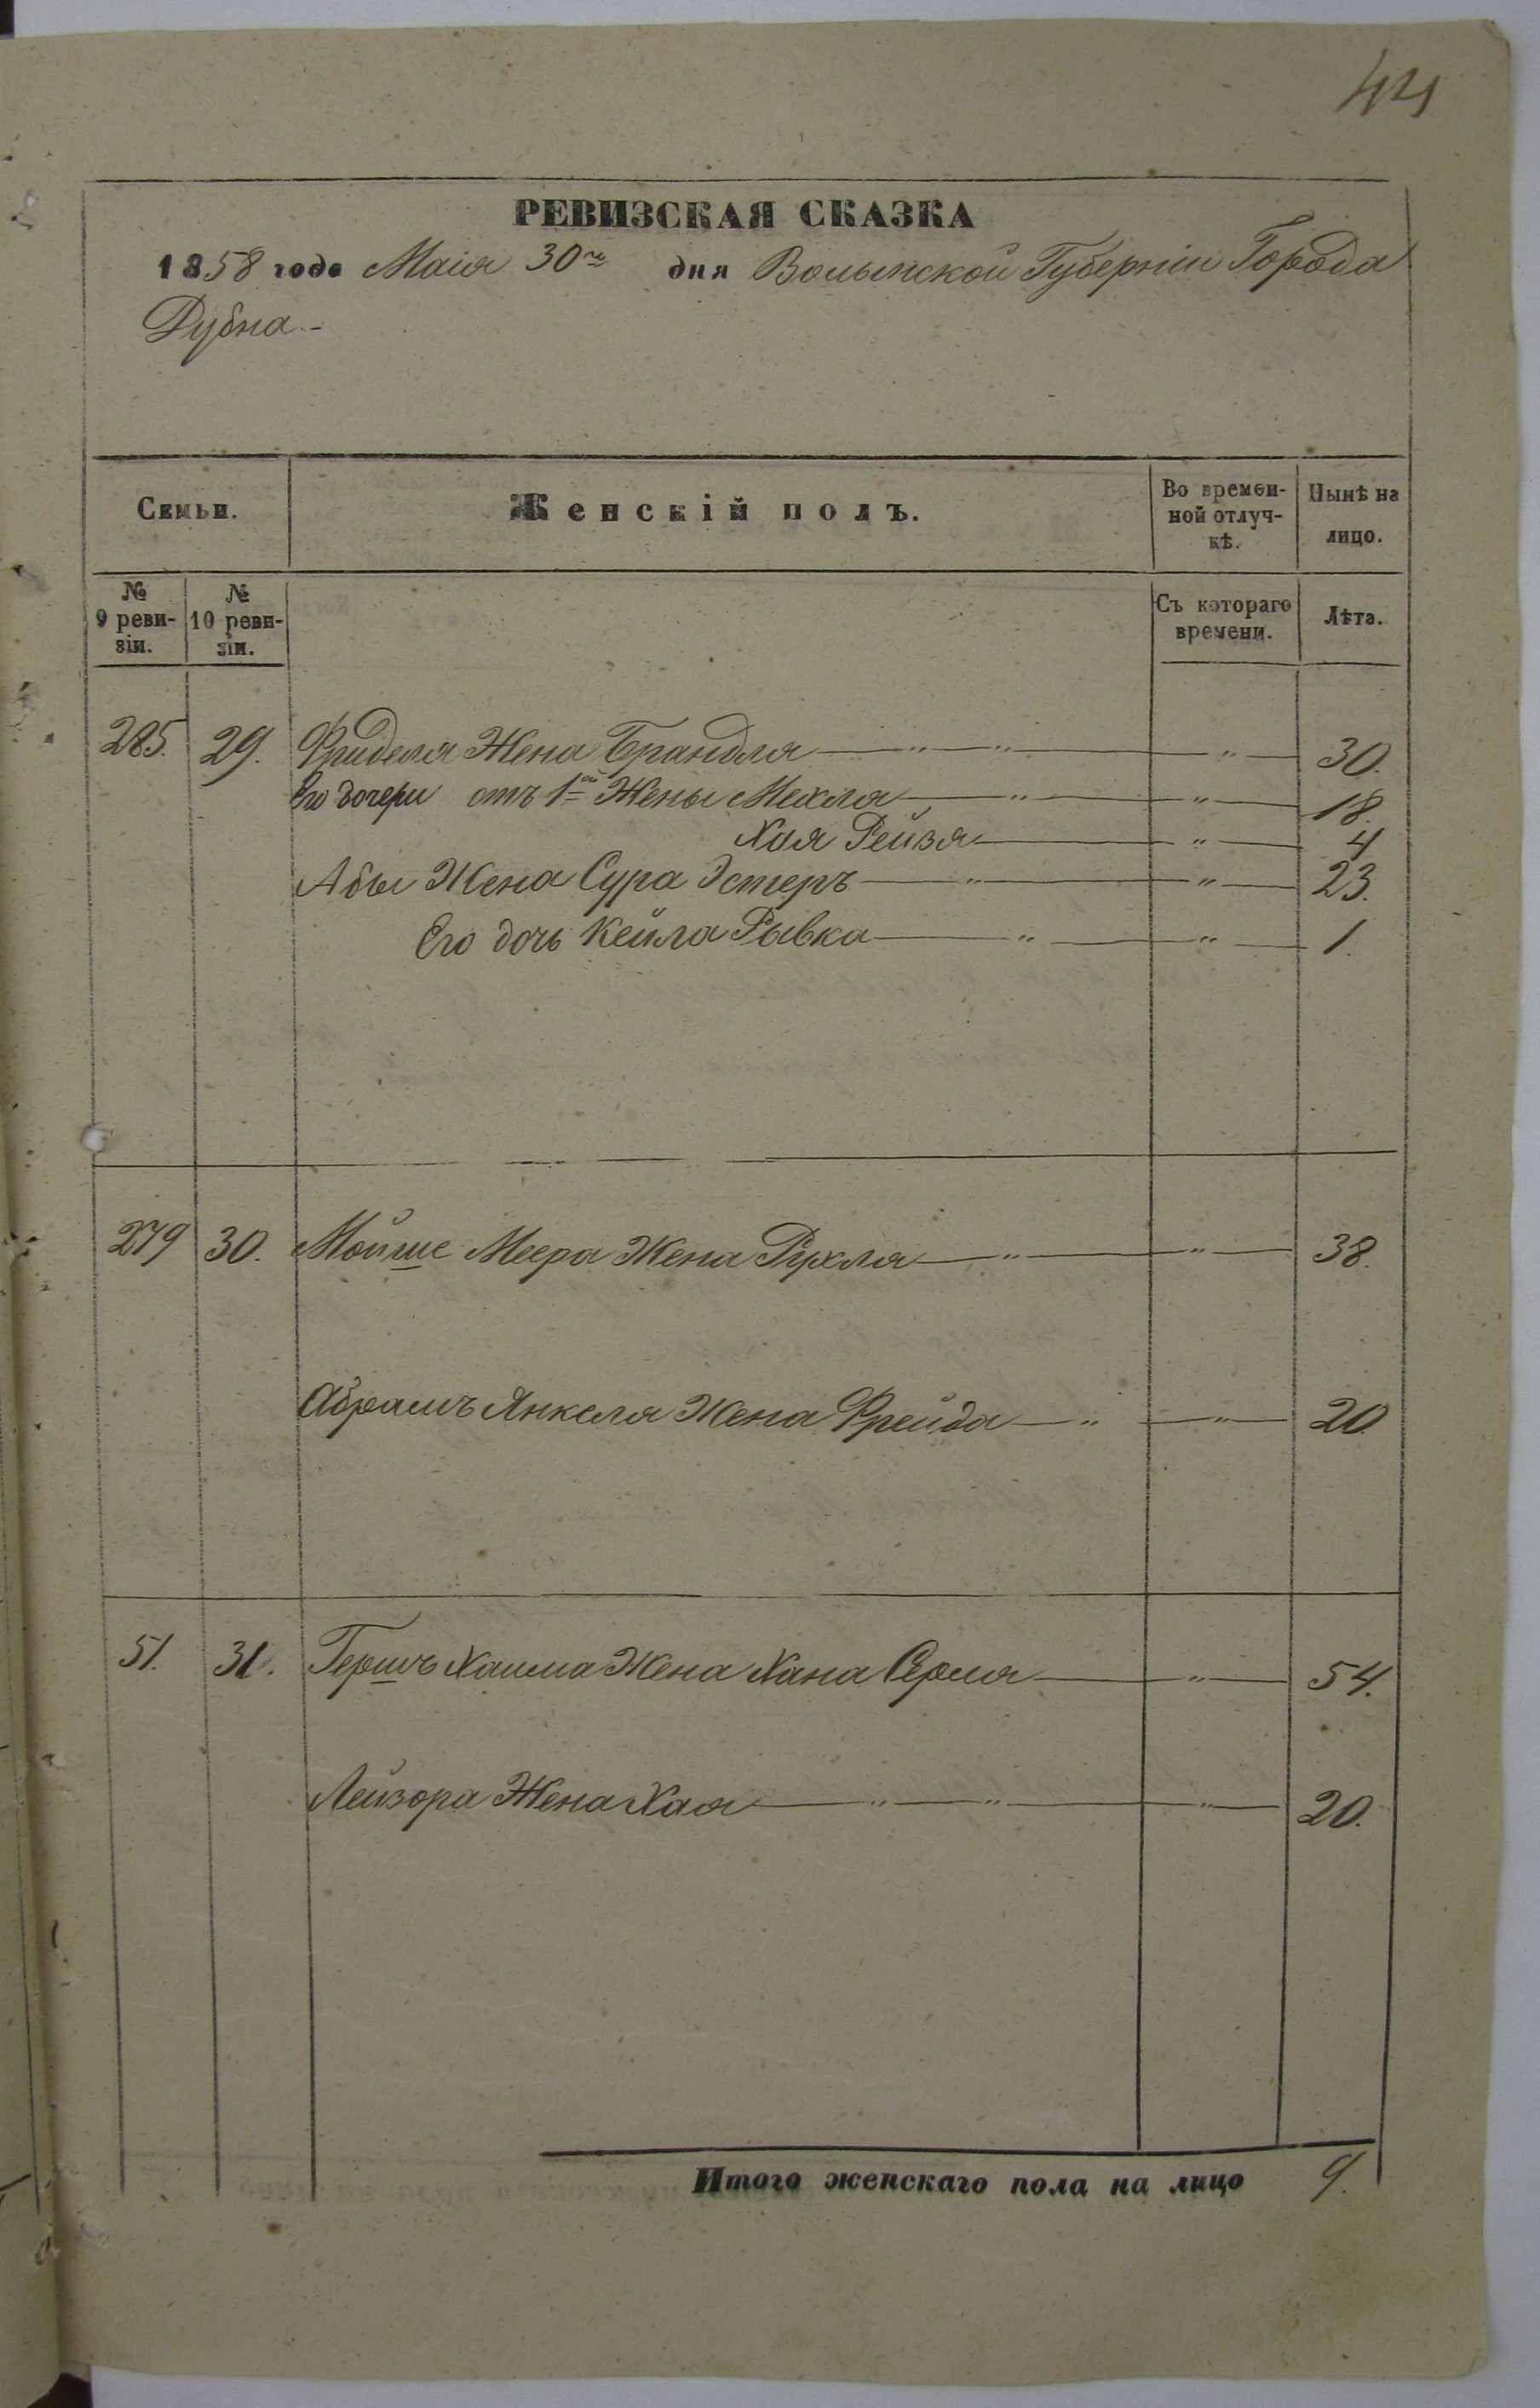 44
РЕВИЗСКАЯ СКАЗКА
1858 года Маія 30го дня Волынской Губерніи Города
Дубна.-
Семьи. Женскій полъ. Во времен-ной отлуч-кѣ. Нынѣ на лицо.
№ 9 реви-зіи. № 10 реви-зіи. Съ котораго времени. Лѣта.
285. 29. Фриделя Жена Брандля — " — " — " — 30.
Его дочери отъ 1й Жены Мехля — " — " — 18.
Хая Рейзя — " — 4
Абы Жена Сура Эстеръ — " — " — 23.
Его дочь Кейла Рывка — " — " — 1.
279 30. Мойше Меера Жена Рухля — " — " — 38.
Абрамъ Янкеля Жена Фрейда — " — " — 20
51. 31. Гершъ Хаима Жена Хана Серля — " — 54.
Лейзора Жена Хая — " — " — " — 20.
Итого женскаго пола на лицо 9.